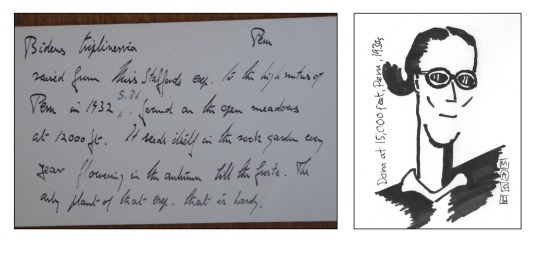 Bidens triplinervia Peru
raised from Miss Staffords exp. to the high mts of
Peru in 1932 found on the open meadows
at 12000 ft. It seeds itself in the rock garden every
year flowering in the autumn till the frosts. The
only plant of that exp. that is hardy.
Dora at 15,000 feet, Peru, 1930s